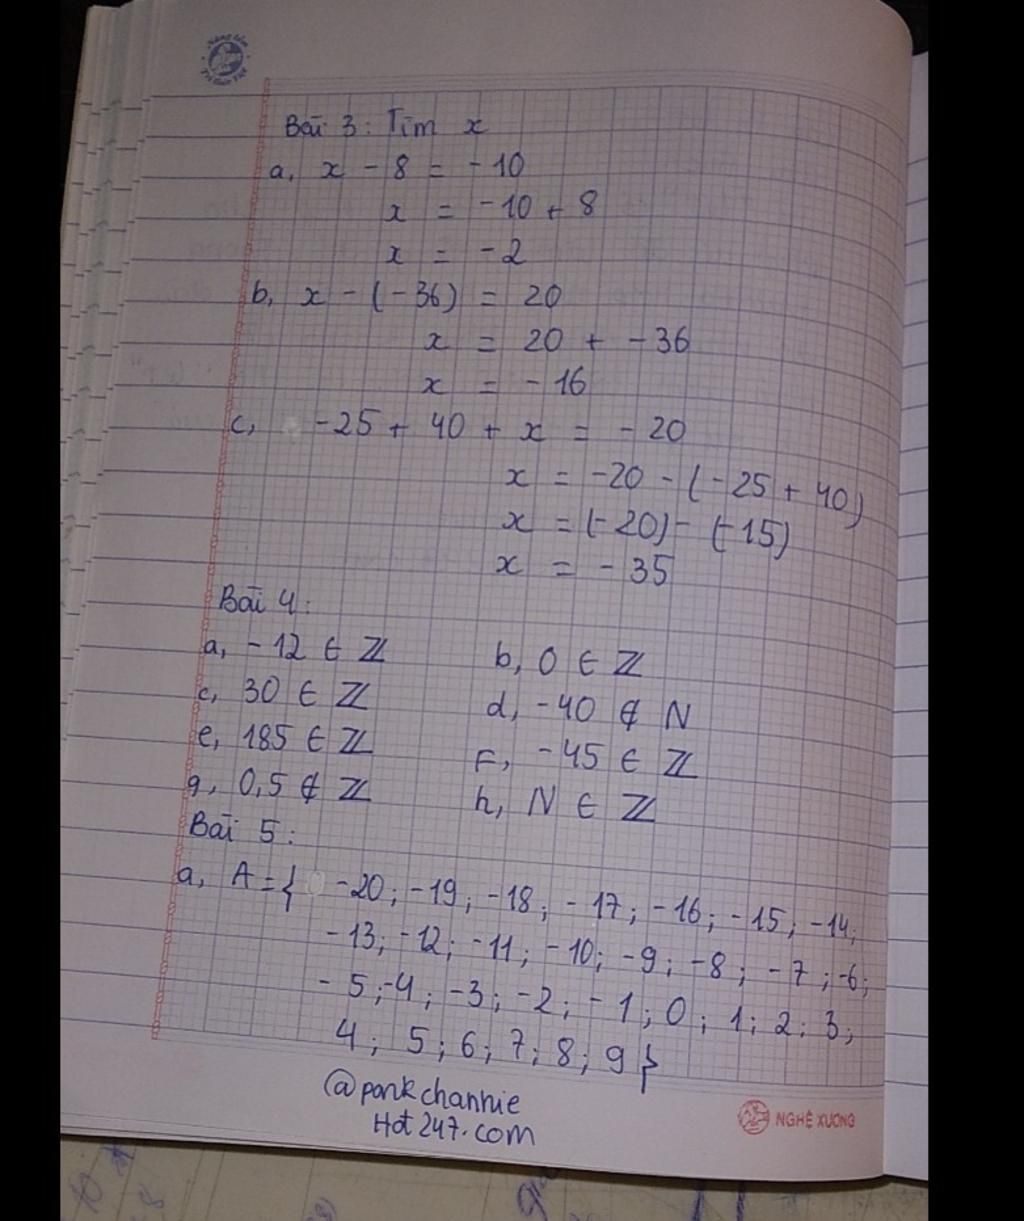 Nâng tầm
Trí thức Việt
Bài 3: Tìm x
a, x - 8 = -10
x = -10 + 8
x = -2
b, x - (-36) = 20
x = 20 + -36
x = -16
c, -25 + 40 + x = -20
x = -20 - (-25 + 40)
x = (-20) - (-15)
x = -35
Bài 4:
a, -12 ∈ ℤ b, 0 ∈ ℤ
c, 30 ∈ ℤ d, -40 ∉ N
e, 185 ∈ ℤ F, -45 ∈ ℤ
g, 0,5 ∉ ℤ h, N ∈ ℤ
Bài 5:
a, A = { -20; -19; -18; -17; -16; -15; -14;
-13; -12; -11; -10; -9; -8; -7; -6;
-5; -4; -3; -2; -1; 0; 1; 2; 3;
4; 5; 6; 7; 8; 9 }
@parkchannie
Hot247.com
NGHỆ XƯƠNG